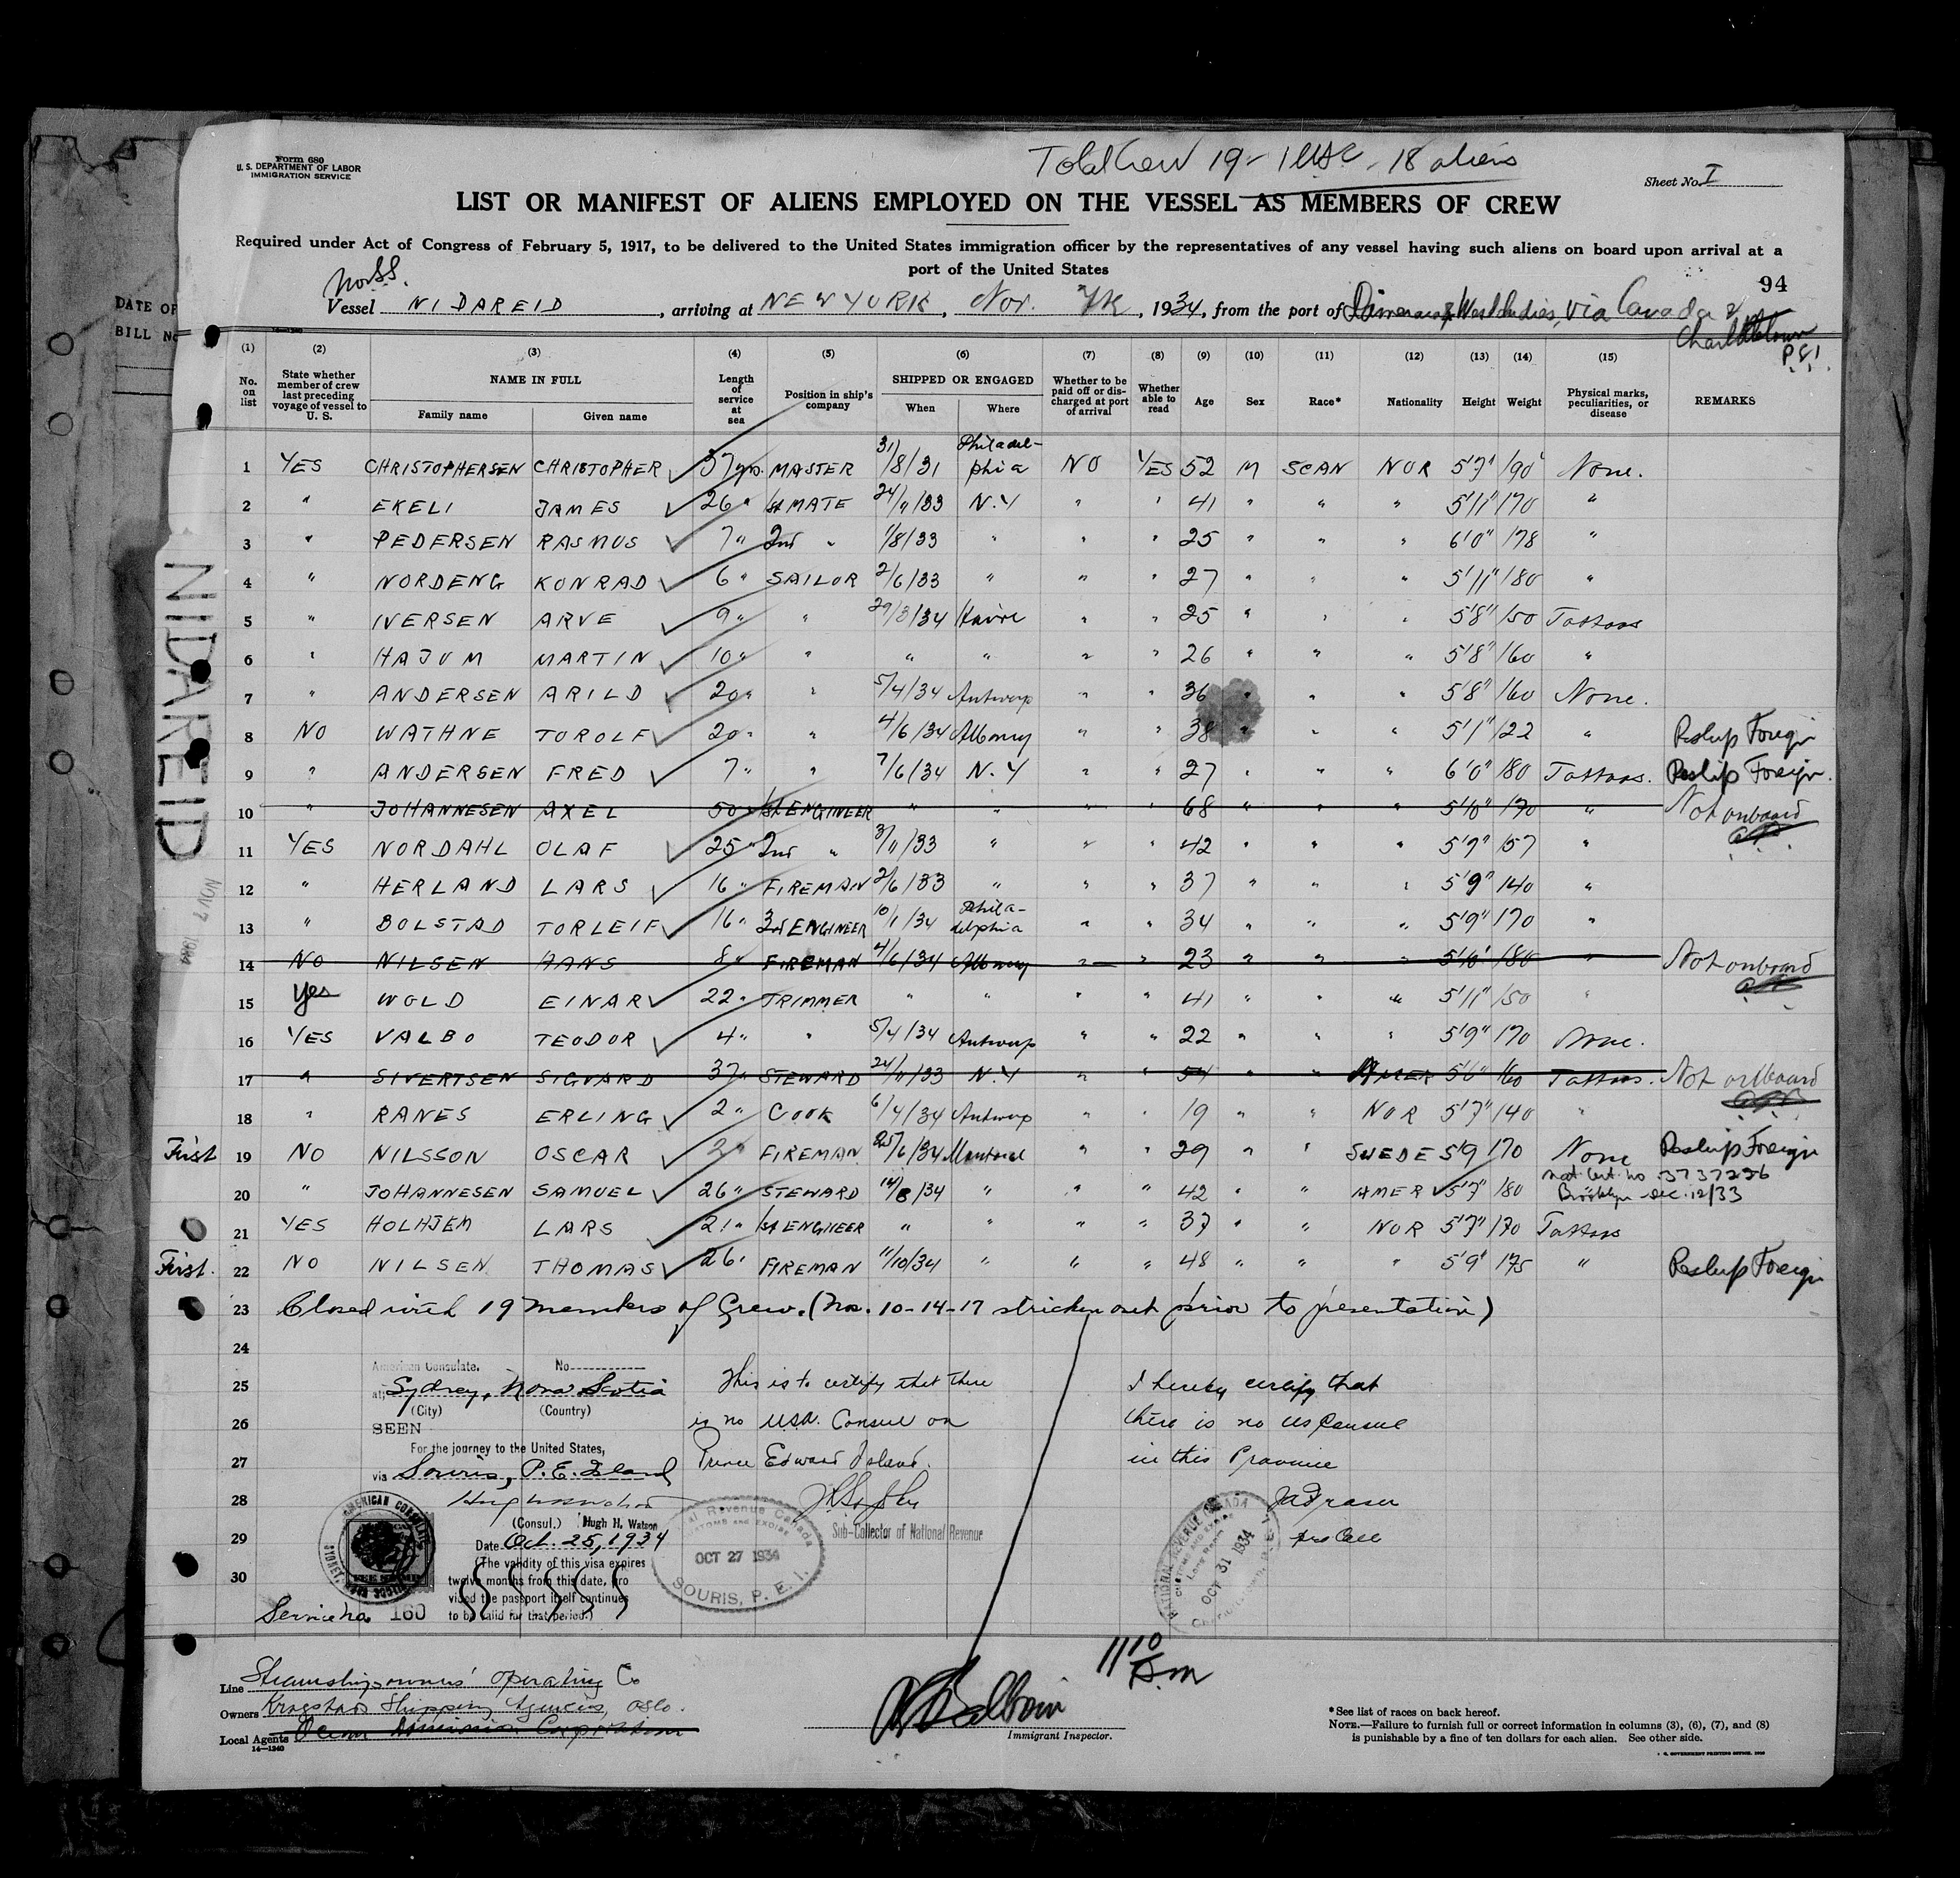 Form 680
U. S. DEPARTMENT OF LABOR
IMMIGRATION SERVICE
Total Crew 19 - 1 USC - 18 aliens
Sheet No. I
LIST OR MANIFEST OF ALIENS EMPLOYED ON THE VESSEL AS MEMBERS OF CREW
Required under Act of Congress of February 5, 1917, to be delivered to the United States immigration officer by the representatives of any vessel having such aliens on board upon arrival at a
port of the United States
94
DATE OF
BILL NO
Nor SS.
Vessel NIDAREID, arriving at NEW YORK, Nov. 7th, 1934, from the port of West Indies, via Canada &
Charlottetown
P.E.I.
(1) (2) (3) (4) (5) (6) (7) (8) (9) (10) (11) (12) (13) (14) (15)
No. on list State whether member of crew last preceding voyage of vessel to U. S. NAME IN FULL Family name Given name Length of service at sea Position in ship's company SHIPPED OR ENGAGED When Where Whether to be paid off or discharged at port of arrival Whether able to read Age Sex Race* Nationality Height Weight Physical marks, peculiarities, or disease REMARKS
1 YES CHRISTOPHERSEN CHRISTOPHER 37 yrs. MASTER 31/8/31 Philadel-phia NO YES 52 M SCAN NOR 5'7" 190 None.
2 " EKELI JAMES 26 " 1st MATE 24/11/33 N.Y " " 41 " " " 5'11" 170 "
3 " PEDERSEN RASMUS 7 " 2nd " 1/8/33 " " " 25 " " " 6'0" 178 "
4 " NORDENG KONRAD 6 " SAILOR 2/6/33 " " " 27 " " " 5'11" 180 "
5 " IVERSEN ARVE 9 " " 29/3/34 Havre " " 25 " " " 5'8" 150 Tattoos
6 " HAJUM MARTIN 10 " " " " " " 26 " " " 5'8" 160 "
7 " ANDERSEN ARILD 20 " " 5/4/34 Antwerp " " 36 " " " 5'8" 160 None.
8 NO WATHNE TOROLF 20 " " 4/6/34 Albany " " 38 " " " 5'1" 122 " Reship Foreign
9 " ANDERSEN FRED 7 " " 7/6/34 N.Y " " 27 " " " 6'0" 180 Tattoos. Reship Foreign.
10 " JOHANNESEN AXEL 50 " 1st ENGINEER " " " 68 " " " 5'10" 170 " Not onboard
11 YES NORDAHL OLAF 25 " 2nd " 3/11/33 " " " 42 " " " 5'9" 157 "
12 " HERLAND LARS 16 " FIREMAN 2/6/33 " " " 37 " " " 5'9" 140 "
13 " BOLSTAD TORLEIF 16 " 3rd ENGINEER 10/1/34 Phila-delphia " " 34 " " " 5'9" 170 "
14 NO NILSEN HANS 8 " FIREMAN 4/6/34 Albany " " 23 " " " 5'10" 180 " Not onboard
15 Yes WOLD EINAR 22 " TRIMMER " " " " 41 " " " 5'11" 150 "
16 YES VALBO TEODOR 4 " " 5/4/34 Antwerp " " 22 " " " 5'9" 170 None.
17 " SIVERTSEN SIGVARD 37 " STEWARD 24/11/33 N.Y " " 54 " " AMER 5'6" 160 Tattoos. Not onboard
18 " RANES ERLING 2 " COOK 6/4/34 Antwerp " " 19 " " NOR 5'7" 140 "
First 19 NO NILSSON OSCAR 3 " FIREMAN 25/6/34 Montreal " " 29 " " SWEDE 5'9 170 None Reship Foreign
20 " JOHANNESEN SAMUEL 26 " STEWARD 14/8/34 " " " 42 " " AMER 5'7" 180 Nat. Cert. no 3737226
Brooklyn Dec. 12/33
21 YES HOLHJEM LARS 21 " 1st ENGINEER " " " " 37 " " NOR 5'7" 170 Tattoos
First. 22 NO NILSEN THOMAS 26 " FIREMAN 11/10/34 " " " 48 " " " 5'9" 175 " Reship Foreign
23 Closed with 19 members of Crew. (Nos. 10-14-17 stricken out prior to presentation)
24
25
26
27
28
29
30
NIDAREID
NOV 7 1934
American Consulate. No.
at Sydney, Nova Scotia
(City) (Country)
SEEN
For the journey to the United States,
via Souris, P. E. Island
(Consul.) Hugh H. Watson
Date Oct. 25, 1934
(The validity of this visa expires
twelve months from this date, pro
vided the passport itself continues
to be valid for that period.)
AMERICAN CONSULATE
Service No. 160
This is to certify that there
is no USA. Consul on
Prince Edward Island.
Sub-Collector of National Revenue
National Revenue Canada
CUSTOMS AND EXCISE
OCT 27 1934
SOURIS, P. E. I.
I hereby certify that
there is no US Consul
in this Province
JA Fraser
NATIONAL REVENUE CANADA
CUSTOMS AND EXCISE
Long Room
OCT 31 1934
11 10 A.m
Line Steamship owners' operating Co
Owners Shipping Agencies, Oslo.
Local Agents Ocean Dominion Corporation
14—1240
Immigrant Inspector.
*See list of races on back hereof.
NOTE.—Failure to furnish full or correct information in columns (3), (6), (7), and (8)
is punishable by a fine of ten dollars for each alien. See other side.